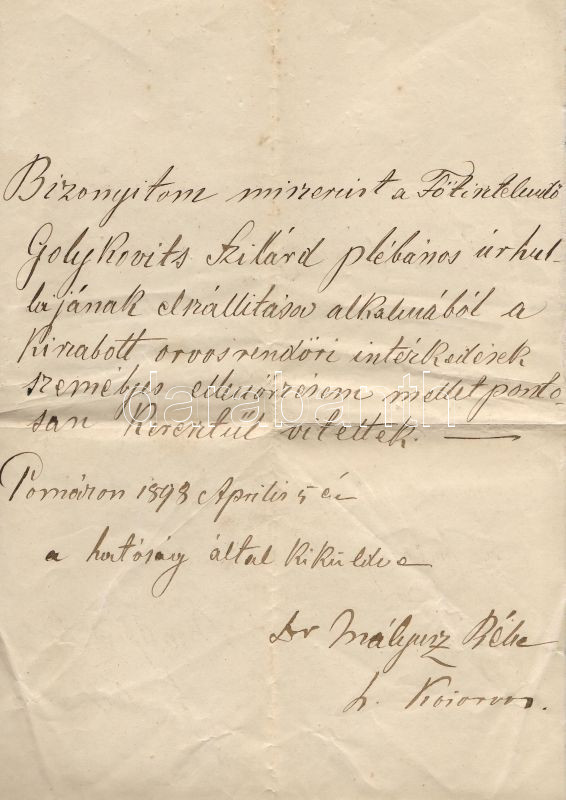 Bizonyitom miszerint a Főtisztelendő
Golykovits Szilárd plébános úr hul-
lájának elszállitása alkalmából a
kiszabott orvosrendőri intézkedések
személyes ellenőrzésem mellet ponto-
san keresztül vitettek. —
Pomázon 1898 Április 5 én
a hatóság által kiküldve
Dr Mályusz Béla
h. Körorvos.
darabanth